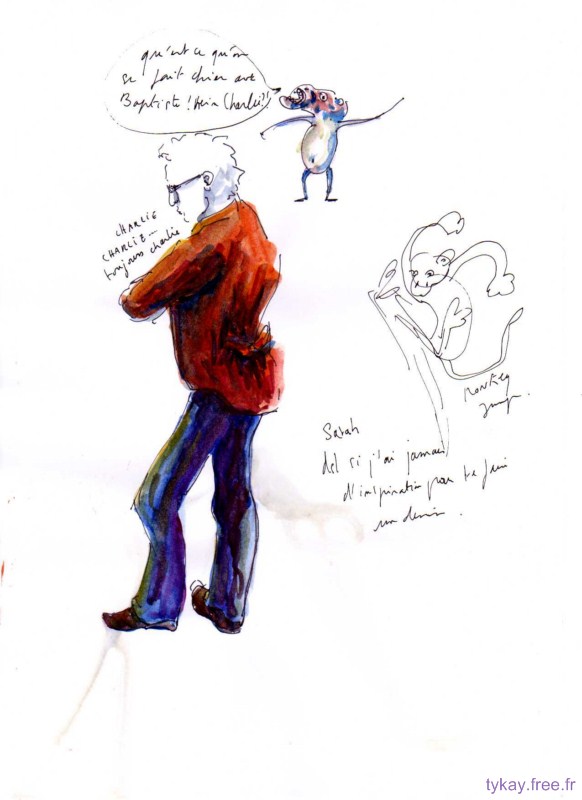 qu'est ce qu'on
se fait chier avec
Baptiste ! Hein Charlie?!
CHARLIE
CHARLIE...
toujours charlie
MONKEY
Jump.
Sarah
dsl si j'ai jamais
d'inspiration pour te faire
un dessin.
tykay.free.fr